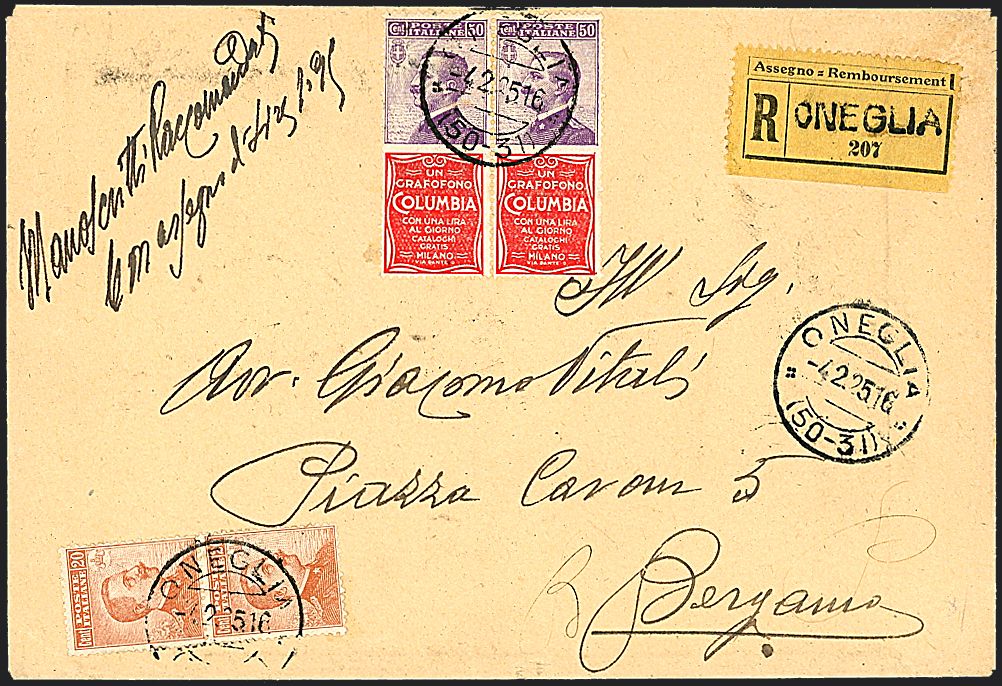 Manoscritti Raccomandati
Con assegno di
Cent. POSTE ITALIANE 50
Cent. POSTE ITALIANE 50
ONEGLIA
-4.2.25 16
(50-31)
UN
GRAFOFONO
COLUMBIA
CON UNA LIRA
AL GIORNO
CATALOGHI
GRATIS
MILANO
VIA DANTE 9
UN
GRAFOFONO
COLUMBIA
CON UNA LIRA
AL GIORNO
CATALOGHI
GRATIS
MILANO
VIA DANTE 9
Assegno = Remboursement
R ONEGLIA
207
Ill Sig.
Avv. Giacomo Vitali
Piazza Cavour 5
Bergamo
ONEGLIA
-4.2.25 16
(50-31)
Cent. POSTE ITALIANE 20
POSTE ITALIANE
ONEGLIA
-4.2.25 16